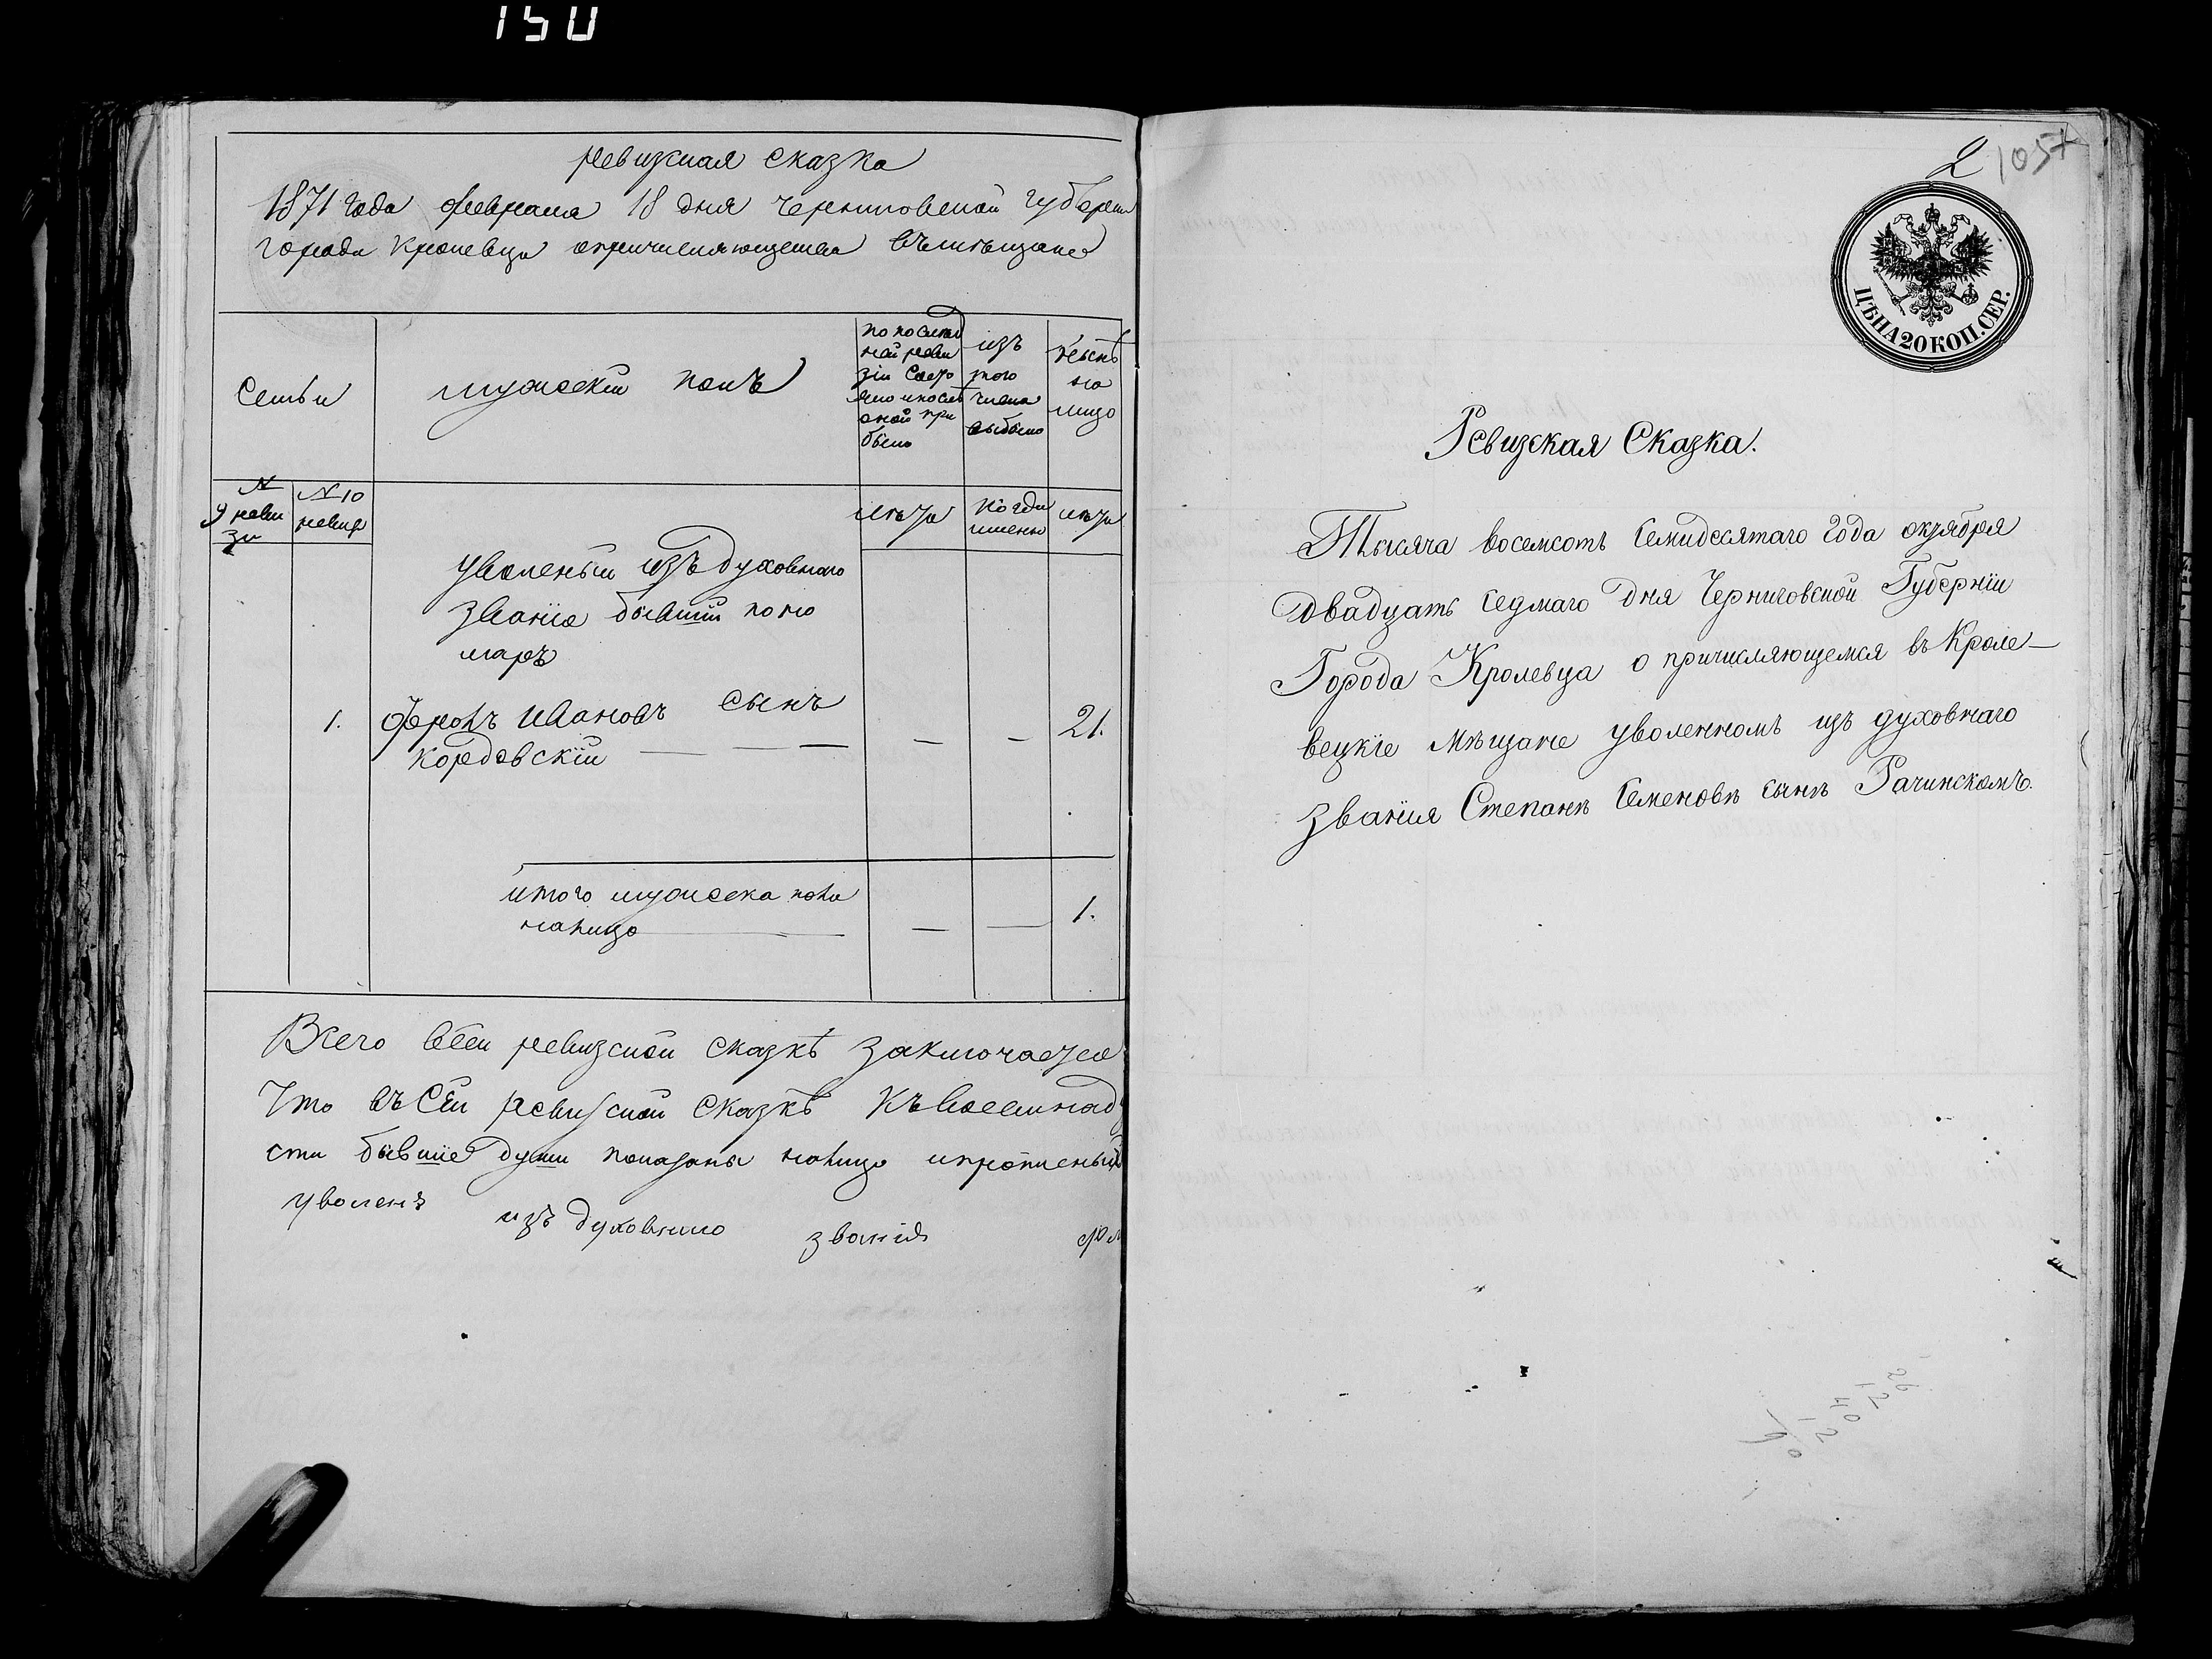 150
ревизкая сказка
1871 года февраля 18 дня черниговской губерни
города Кролевца опричисляющемся въ мещане
Семьи
мужескій полъ
по послед
ней реви
зіи состо
яло и после
оной при
было
изъ
того
числа
выбыло
ныне
на
лицо
№
9 реви
зи
№ 10
ревиз
лета
когда
именно
лета
уволеный изъ духовнаго
званія бывшій поно
марь
1. Фролъ Ивановъ сынъ — — 21.
Кордовскій
итого мужеска пола
налицо — — 1.
Всего всей ревизской сказкѣ заключается
Что въ Сей ревизской сказкѣ
сти бывшіе души показаны налицо и прописныи
уволенъ изъ духовного званія
2 1057
ЦѢНА 20 КОП. СЕР.
Ревизская Сказка.
Тысяча восемсотъ Семидесятаго года октября
двадцать седмаго дня Черниговской Губерніи
Города Кролевца о причисляющемся въ Кроле-
вецкіе Мѣщане уволенномъ изъ духовнаго
званія Степанѣ Семеновѣ сынѣ Рачинскомъ.